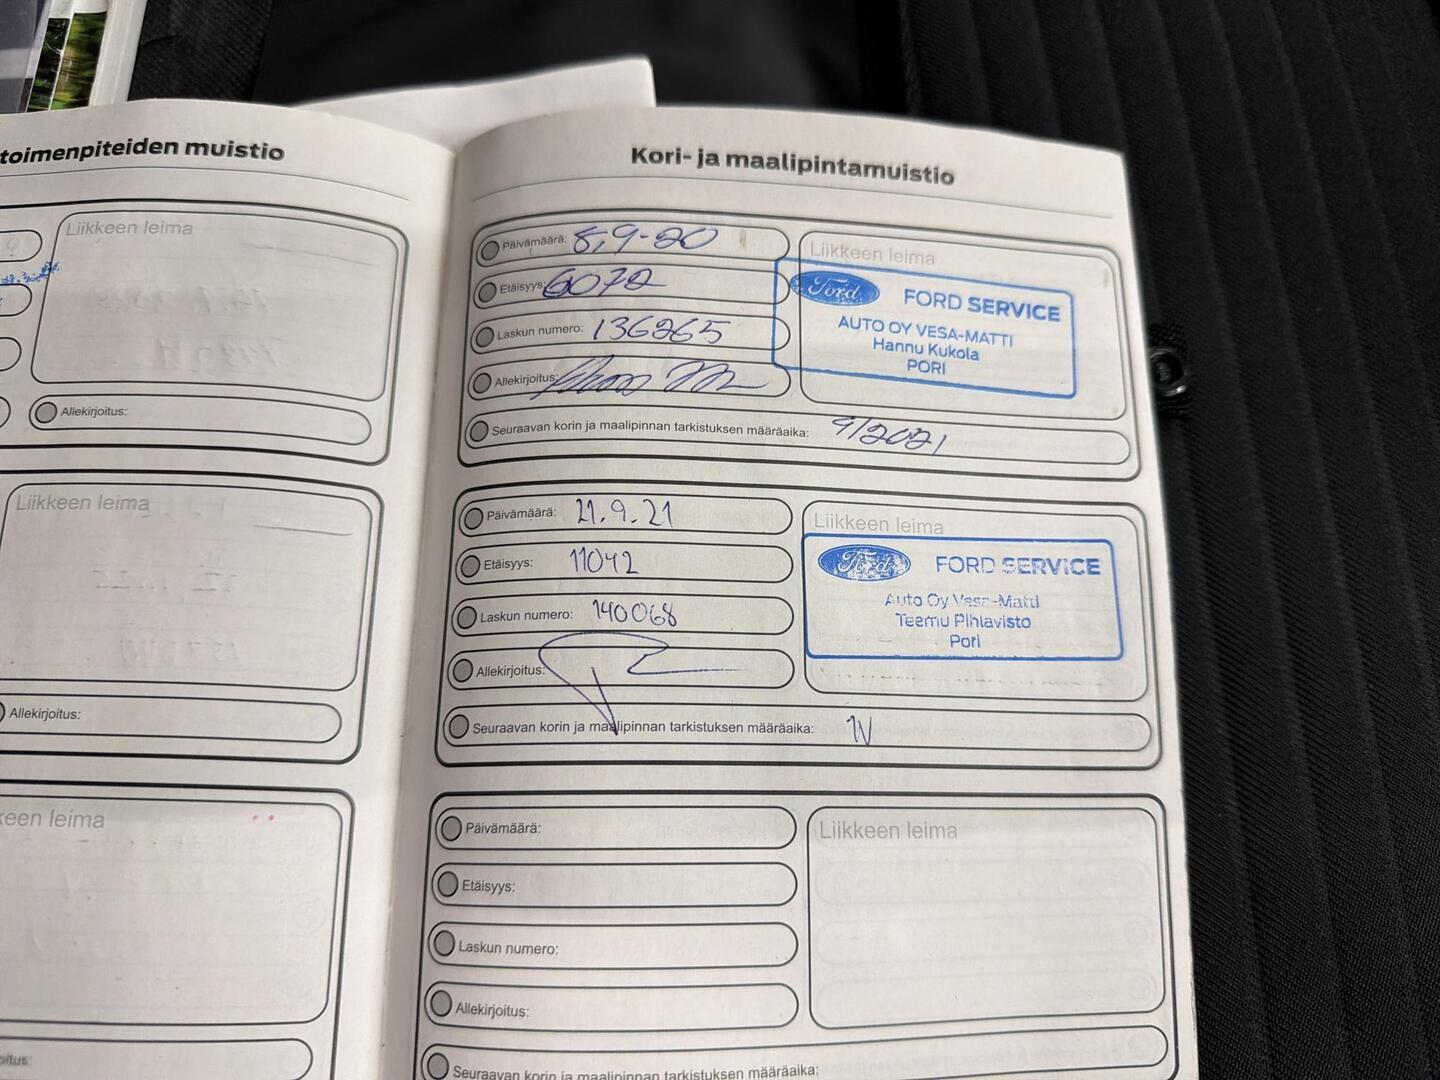 toimenpiteiden muistio
Liikkeen leima
Allekirjoitus:
Liikkeen leima
Allekirjoitus:
keen leima
oitus:
Kori- ja maalipintamuistio
Päivämäärä: 8,9-20
Etäisyys: 6072
Laskun numero: 136265
Allekirjoitus:
Liikkeen leima
Ford FORD SERVICE
AUTO OY VESA-MATTI
Hannu Kukola
PORI
Seuraavan korin ja maalipinnan tarkistuksen määräaika: 9/2021
Päivämäärä: 21.9.21
Etäisyys: 11042
Laskun numero: 140068
Allekirjoitus:
Liikkeen leima
Ford FORD SERVICE
Auto Oy Vesa-Matti
Teemu Pihlavisto
Pori
Seuraavan korin ja maalipinnan tarkistuksen määräaika: 1V
Päivämäärä:
Etäisyys:
Laskun numero:
Allekirjoitus:
Liikkeen leima
Seuraavan korin ja maalipinnan tarkistuksen määräaika: